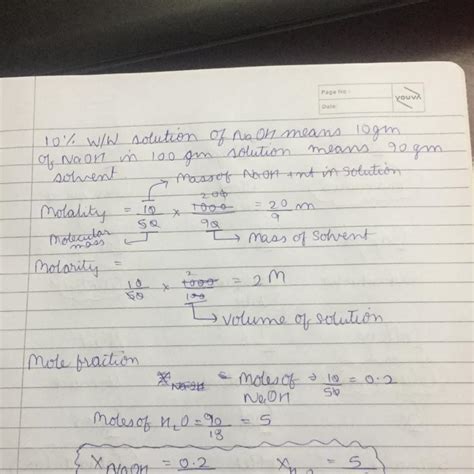 Page No.:
Date:
youva
10% W/W solution of NaOH means 10gm
of NaOH in 100 gm solution means 90gm
solvent
Mass of NaOH in solution
Molality = 10/50 × 1000/90 = 20/9 m
Molecular mass
Mass of solvent
Molarity =
10/50 × 1000/100 = 2M
Volume of solution
Mole fraction
Moles of NaOH → 10/50 = 0.2
Moles of H2O = 90/18 = 5
X NaOH = 0.2
= 5